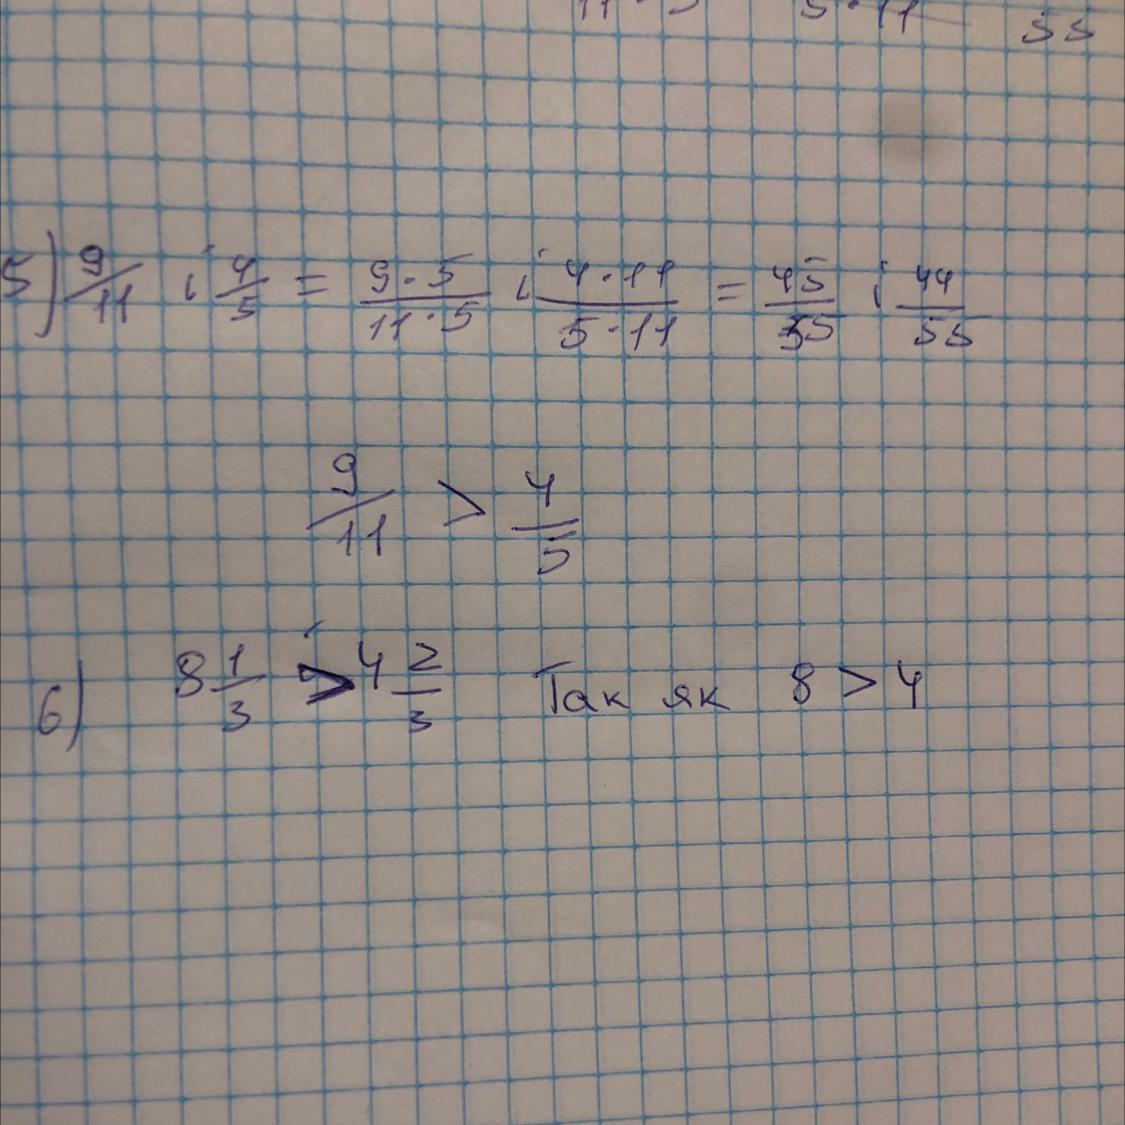 11 · 5 5 · 11 55
5) 9/11 і 4/5 = 9·5/11·5 і 4·11/5·11 = 45/55 і 44/55
9/11 > 4/5
6) 8 1/3 > 4 2/3 Так як 8 > 4